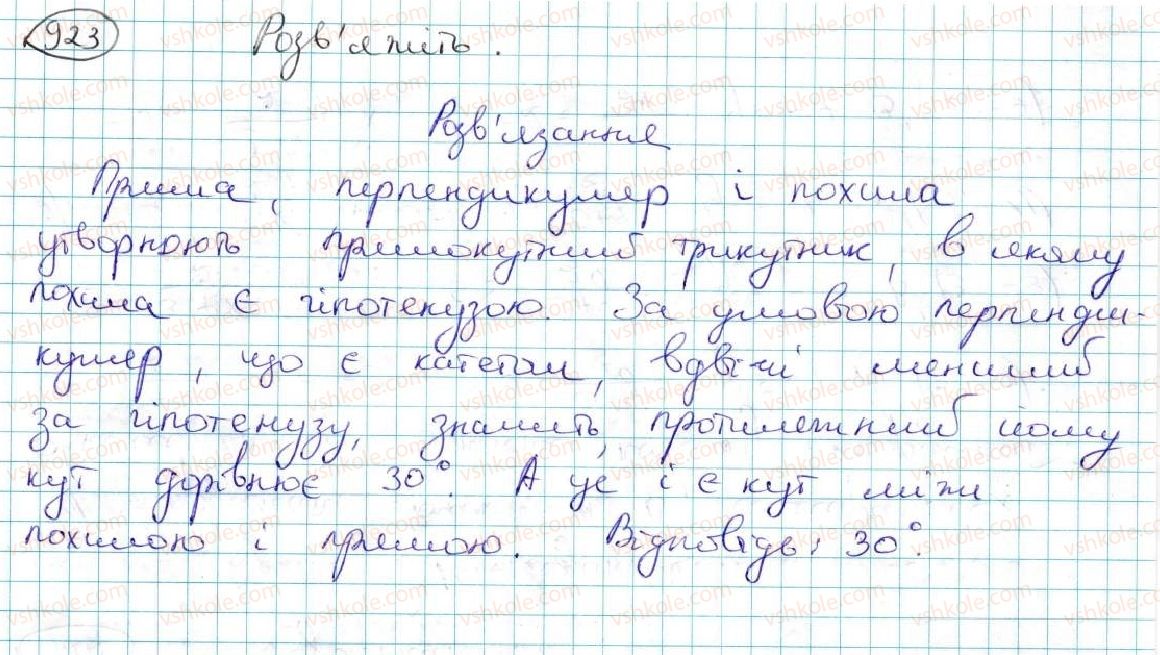 923 Розв'яжіть.
Розв'язання
Пряма, перпендикуляр і похила
утворюють прямокутний трикутник, в якому
похила є гіпотенузою. За умовою перпенди-
куляр, що є катетом, вдвічі менший
за гіпотенузу, значить, протилежний йому
кут дорівнює 30°. А це і є кут між
похилою і прямою. Відповідь: 30°.